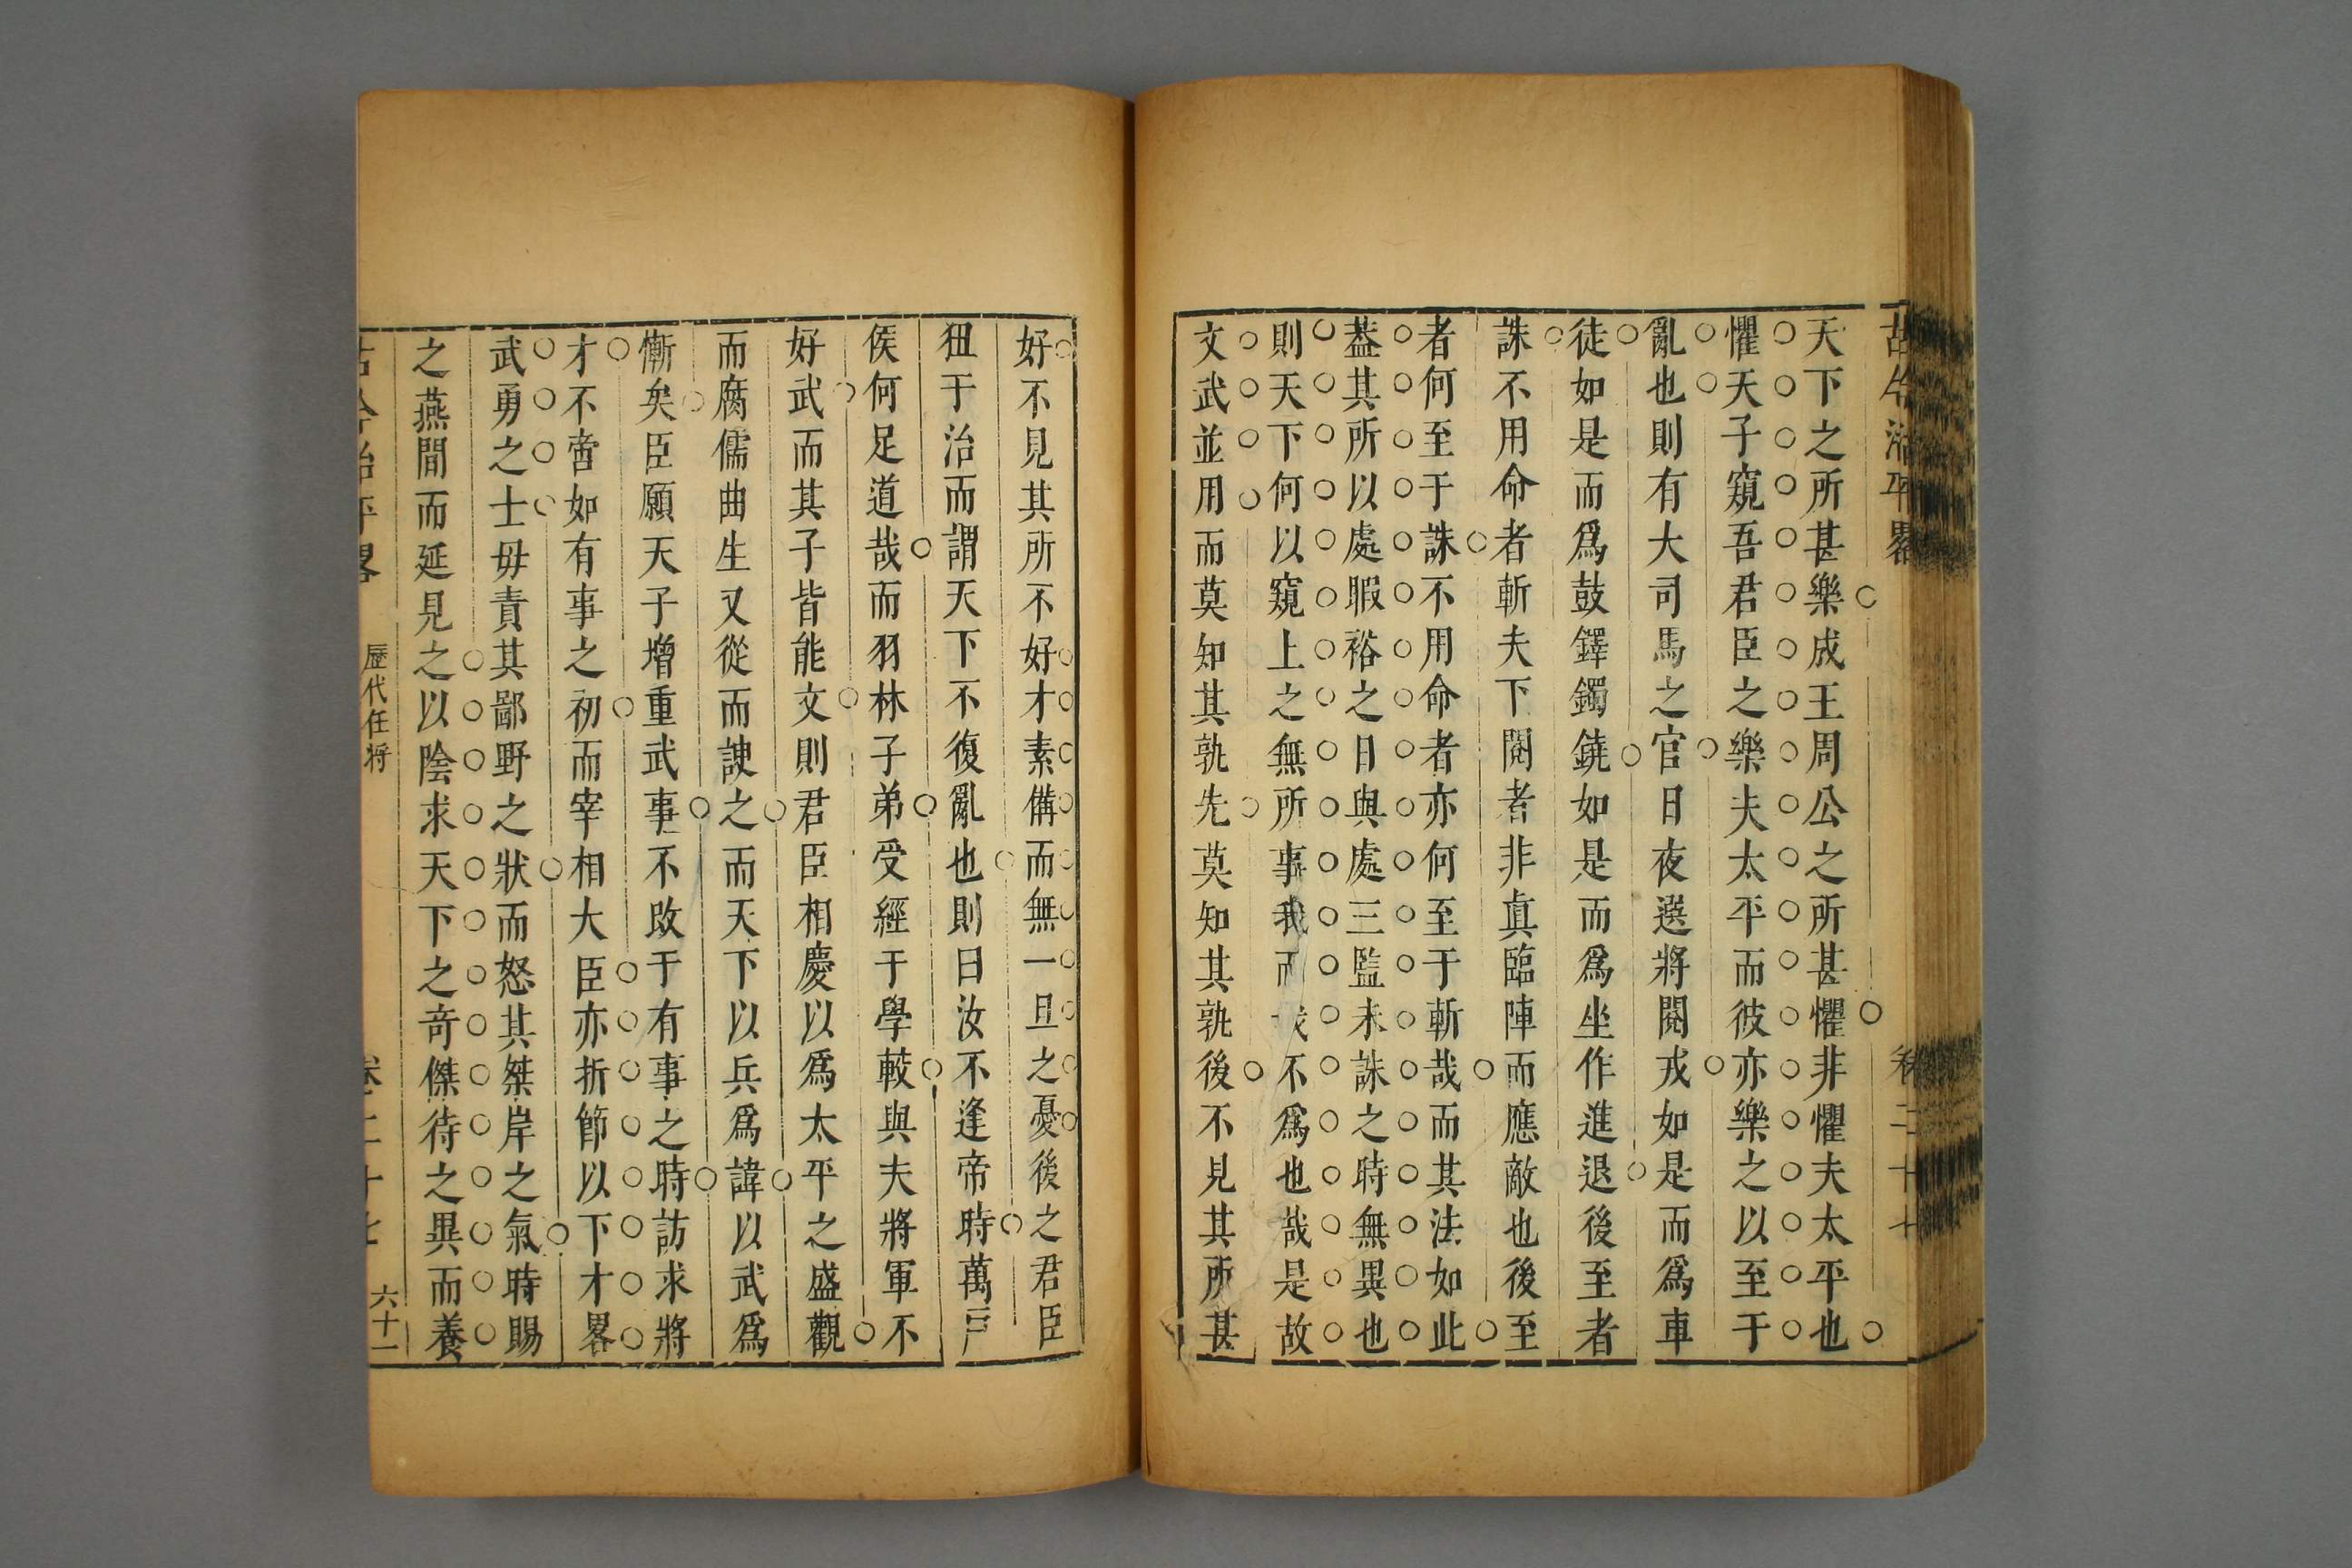 古今治平畧 卷二十七
天下之所甚樂成王周公之所甚懼非懼夫太平也
懼天子窺吾君臣之樂夫太平而彼亦樂之以至于
亂也則有大司馬之官日夜選將閱戎如是而爲車
徒如是而爲鼓鐸鐲鐃如是而爲坐作進退後至者
誅不用命者斬夫下閱者非眞臨陣而應敵也後至
者何至于誅不用命者亦何至于斬哉而其法如此
葢其所以處暇裕之日與處三監未誅之時無異也
則天下何以窺上之無所事我而不爲也哉是故
文武並用而莫知其孰先莫知其孰後不見其所甚
好不見其所不好才素備而無一旦之憂後之君臣
狃于治而謂天下不復亂也則曰汝不逢帝時萬戸
侯何足道哉而羽林子弟受經于學較與夫將軍不
好武而其子皆能文則君臣相慶以爲太平之盛觀
而腐儒曲生又從而諛之而天下以兵爲諱以武爲
慚矣臣願天子增重武事不敗于有事之時訪求將
才不啻如有事之初而宰相大臣亦折節以下才畧
武勇之士毋責其鄙野之狀而怒其桀岸之氣時賜
之燕間而延見之以陰求天下之奇傑待之異而養
古今治平畧 歷代任將 卷二十七 六十一